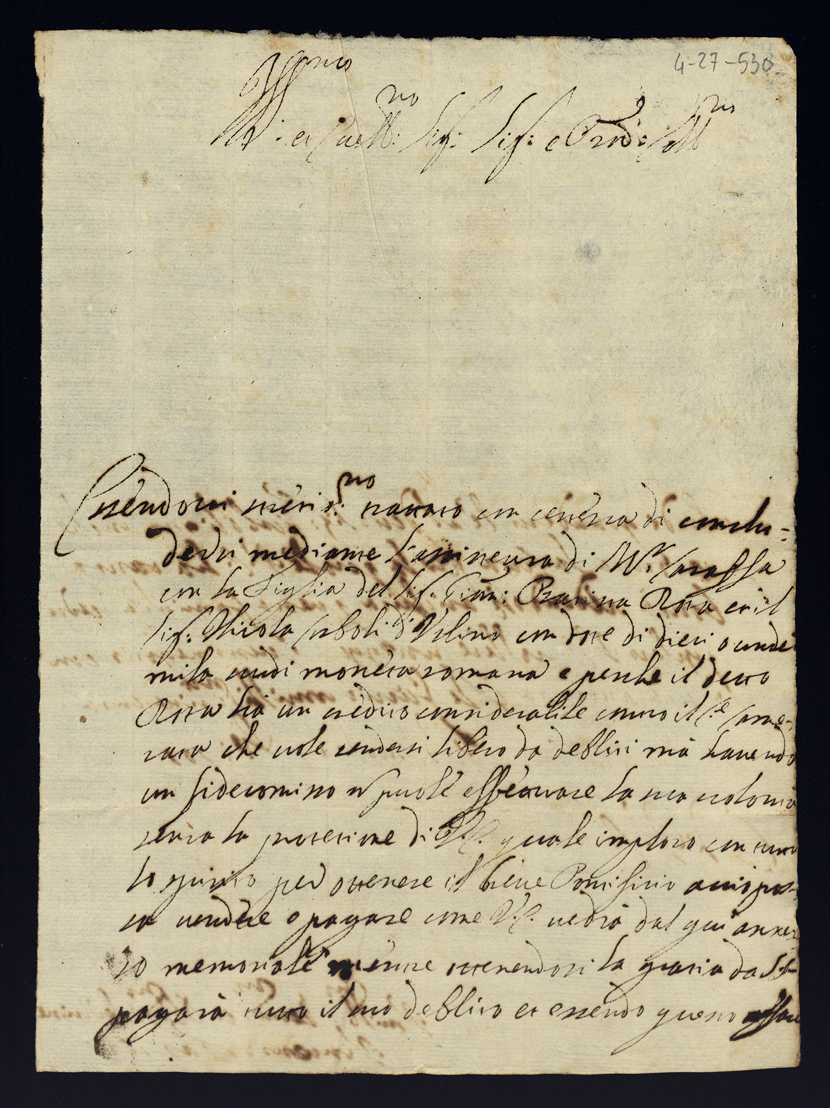 4-27-530
Ill.mo
et Ecc.mo Sig.r Sig.r e Pron Coll.mo
Essendovi matrim.no trattato con certezza di conclu=
dersi mediante l'assistenza di M.r Caraffa
con la Figlia del Sig.r Gian: Rosa et il
Sig.r Nicola d'Veline con dote di dieci o unde
mila scudi moneta romana e perche il detto
Rosa hà un credito considerabile contro il
che vole rendersi libero da debbiti mà havendo
un fidecomisso n puole effettuare la sua volontà
senza la protetione di V.E. quale imploro con tutto
lo spirito per ottenere il breve Pontificio acciò pos-
sa vendere e pagare come V.E. vedrà dal qui annes
so memoriale mentre ottenendosi la gratia da
pagarà tutto il suo debbito et essendo questo affare